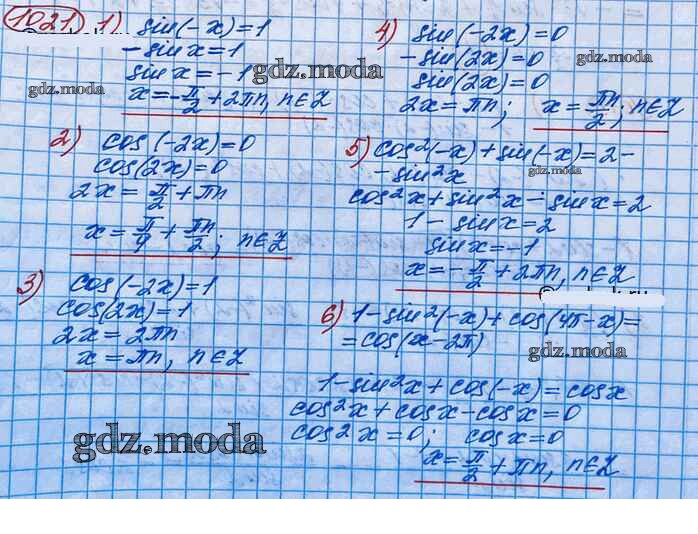 1021. 1) sin(-x)=1
-sinx=1
sinx=-1
x=-π/2+2πn, n∈Z
gdz.moda
2) cos(-2x)=0
cos(2x)=0
2x=π/2+πn
x=π/4+πn/2; n∈Z
gdz.moda
3) cos(-2x)=1
cos(2x)=1
2x=2πn
x=πn, n∈Z
gdz.moda
4) sin(-2x)=0
-sin(2x)=0
sin(2x)=0
2x=πn; x=πn/2; n∈Z
gdz.moda
gdz.moda
gdz.moda
5) cos²(-x)+sin(-x)=2-
-sin²x
gdz.moda
cos²x+sin²x-sinx=2
1-sinx=2
sinx=-1
x=-π/2+2πn, n∈Z
6) 1-sin²(-x)+cos(4π-x)=
=cos(x-2π)
gdz.moda
1-sin²x+cos(-x)=cosx
cos²x+cosx-cosx=0
cos²x=0; cosx=0
x=π/2+πn, n∈Z